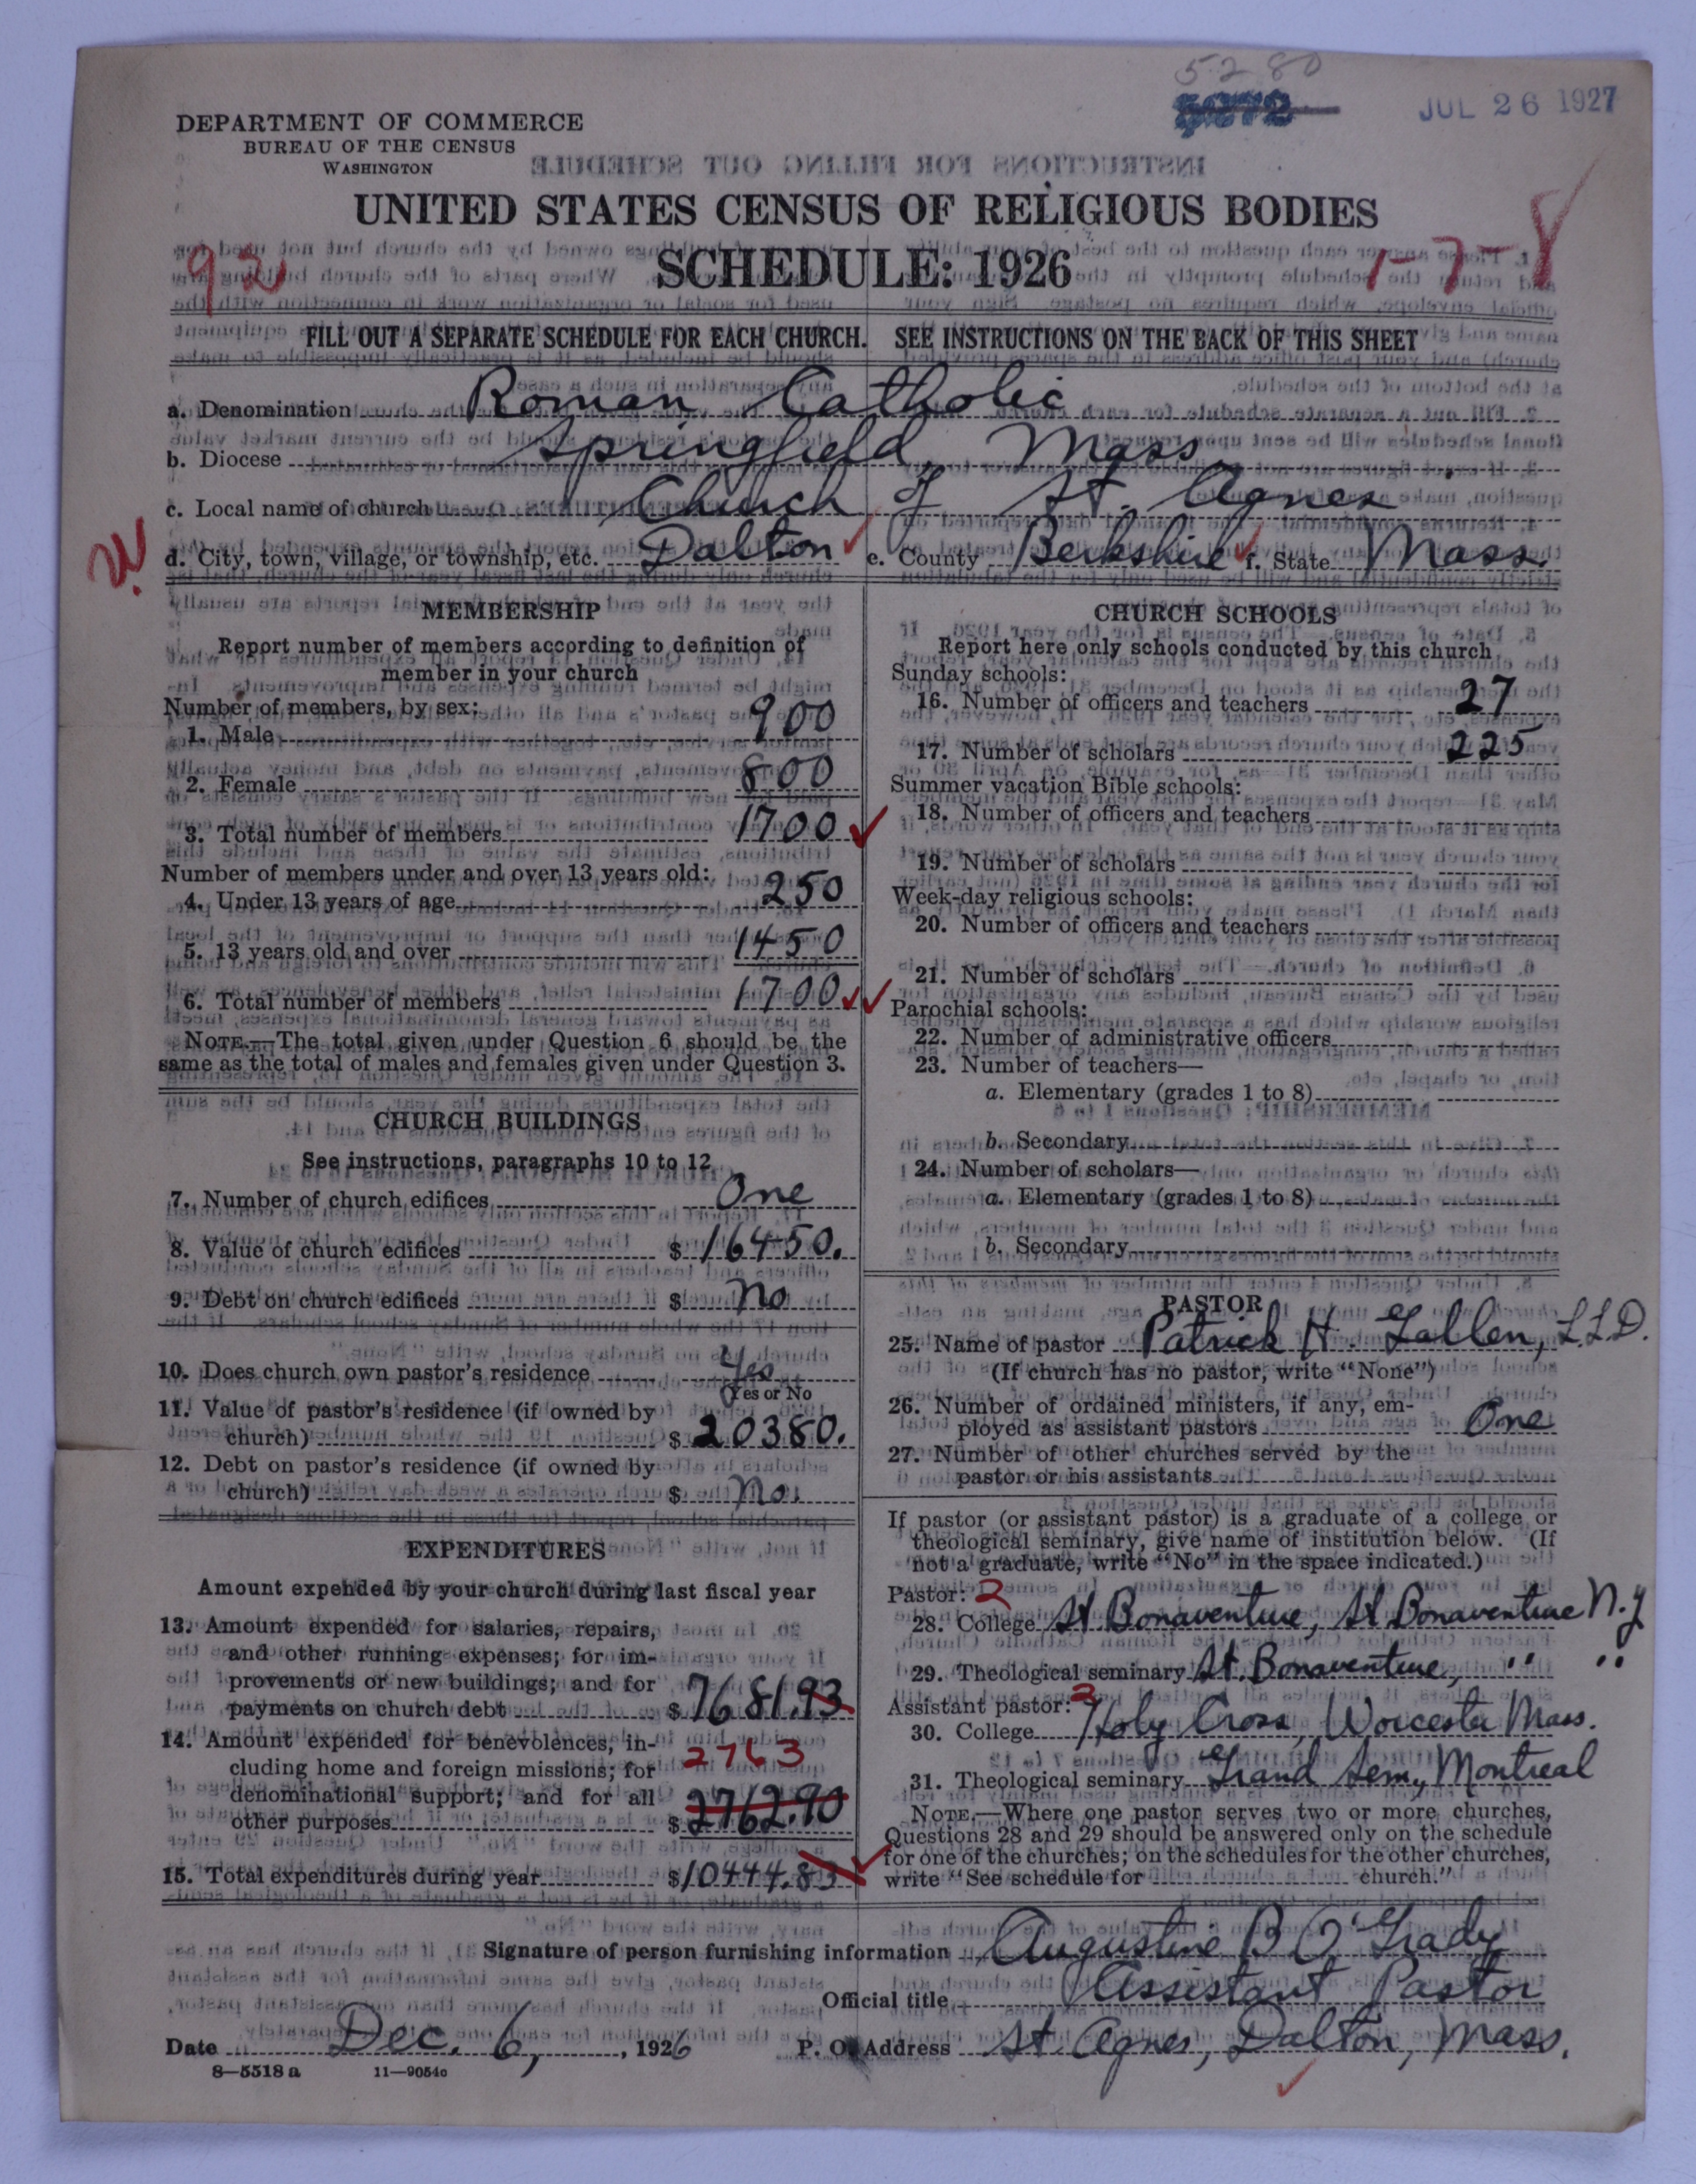 5280
5072
JUL 26 1927
DEPARTMENT OF COMMERCE
BUREAU OF THE CENSUS
WASHINGTON
UNITED STATES CENSUS OF RELIGIOUS BODIES
SCHEDULE: 1926
92
1-7-8
FILL OUT A SEPARATE SCHEDULE FOR EACH CHURCH. SEE INSTRUCTIONS ON THE BACK OF THIS SHEET
a. Denomination Roman Catholic
b. Diocese Springfield, Mass.
c. Local name of church Church of St. Agnes
d. City, town, village, or township, etc. Dalton e. County Berkshire f. State Mass.
MEMBERSHIP
Report number of members according to definition of
member in your church
Number of members, by sex:
1. Male 900
2. Female 800
3. Total number of members 1700
Number of members under and over 13 years old:
4. Under 13 years of age 250
5. 13 years old and over 1450
6. Total number of members 1700
NOTE.—The total given under Question 6 should be the
same as the total of males and females given under Question 3.
CHURCH BUILDINGS
See instructions, paragraphs 10 to 12
7. Number of church edifices One
8. Value of church edifices $ 16450.
9. Debt on church edifices $ No
10. Does church own pastor's residence Yes
(Yes or No
11. Value of pastor's residence (if owned by
church) $ 20380.
12. Debt on pastor's residence (if owned by
church) $ No.
EXPENDITURES
Amount expended by your church during last fiscal year
13. Amount expended for salaries, repairs,
and other running expenses; for im-
provements or new buildings; and for
payments on church debt $ 7681.93
14. Amount expended for benevolences, in-
cluding home and foreign missions; for 2763
denominational support; and for all
other purposes $ 2762.90
15. Total expenditures during year $ 10444.83
CHURCH SCHOOLS
Report here only schools conducted by this church
Sunday schools:
16. Number of officers and teachers 27
17. Number of scholars 225
Summer vacation Bible schools:
18. Number of officers and teachers
19. Number of scholars
Week-day religious schools:
20. Number of officers and teachers
21. Number of scholars
Parochial schools:
22. Number of administrative officers
23. Number of teachers—
a. Elementary (grades 1 to 8)
b. Secondary
24. Number of scholars—
a. Elementary (grades 1 to 8)
b. Secondary
PASTOR
25. Name of pastor Patrick H. Gallen, L.L.D.
(If church has no pastor, write "None")
26. Number of ordained ministers, if any, em-
ployed as assistant pastors One
27. Number of other churches served by the
pastor or his assistants
If pastor (or assistant pastor) is a graduate of a college or
theological seminary, give name of institution below. (If
not a graduate, write "No" in the space indicated.)
Pastor: 2
28. College St Bonaventure, St Bonaventure N.Y
29. Theological seminary St. Bonaventure, " "
Assistant pastor: 3
30. College Holy Cross, Worcester Mass.
31. Theological seminary Grand Sem., Montreal
NOTE.—Where one pastor serves two or more churches,
Questions 28 and 29 should be answered only on the schedule
for one of the churches; on the schedules for the other churches,
write "See schedule for church."
Signature of person furnishing information Augustine B O'Grady
Official title Assistant Pastor
Date Dec. 6, 1926 P. O. Address St. Agnes, Dalton, Mass.
8—5518 a 11—9054o